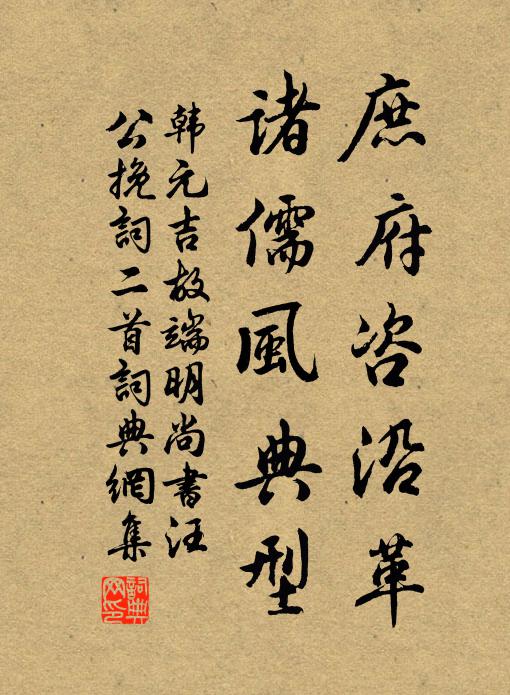 庶府咨沿革
諸儒風典型
韩元吉故端明尚書汪
公挽詞二首詞典網集
詞典
网印